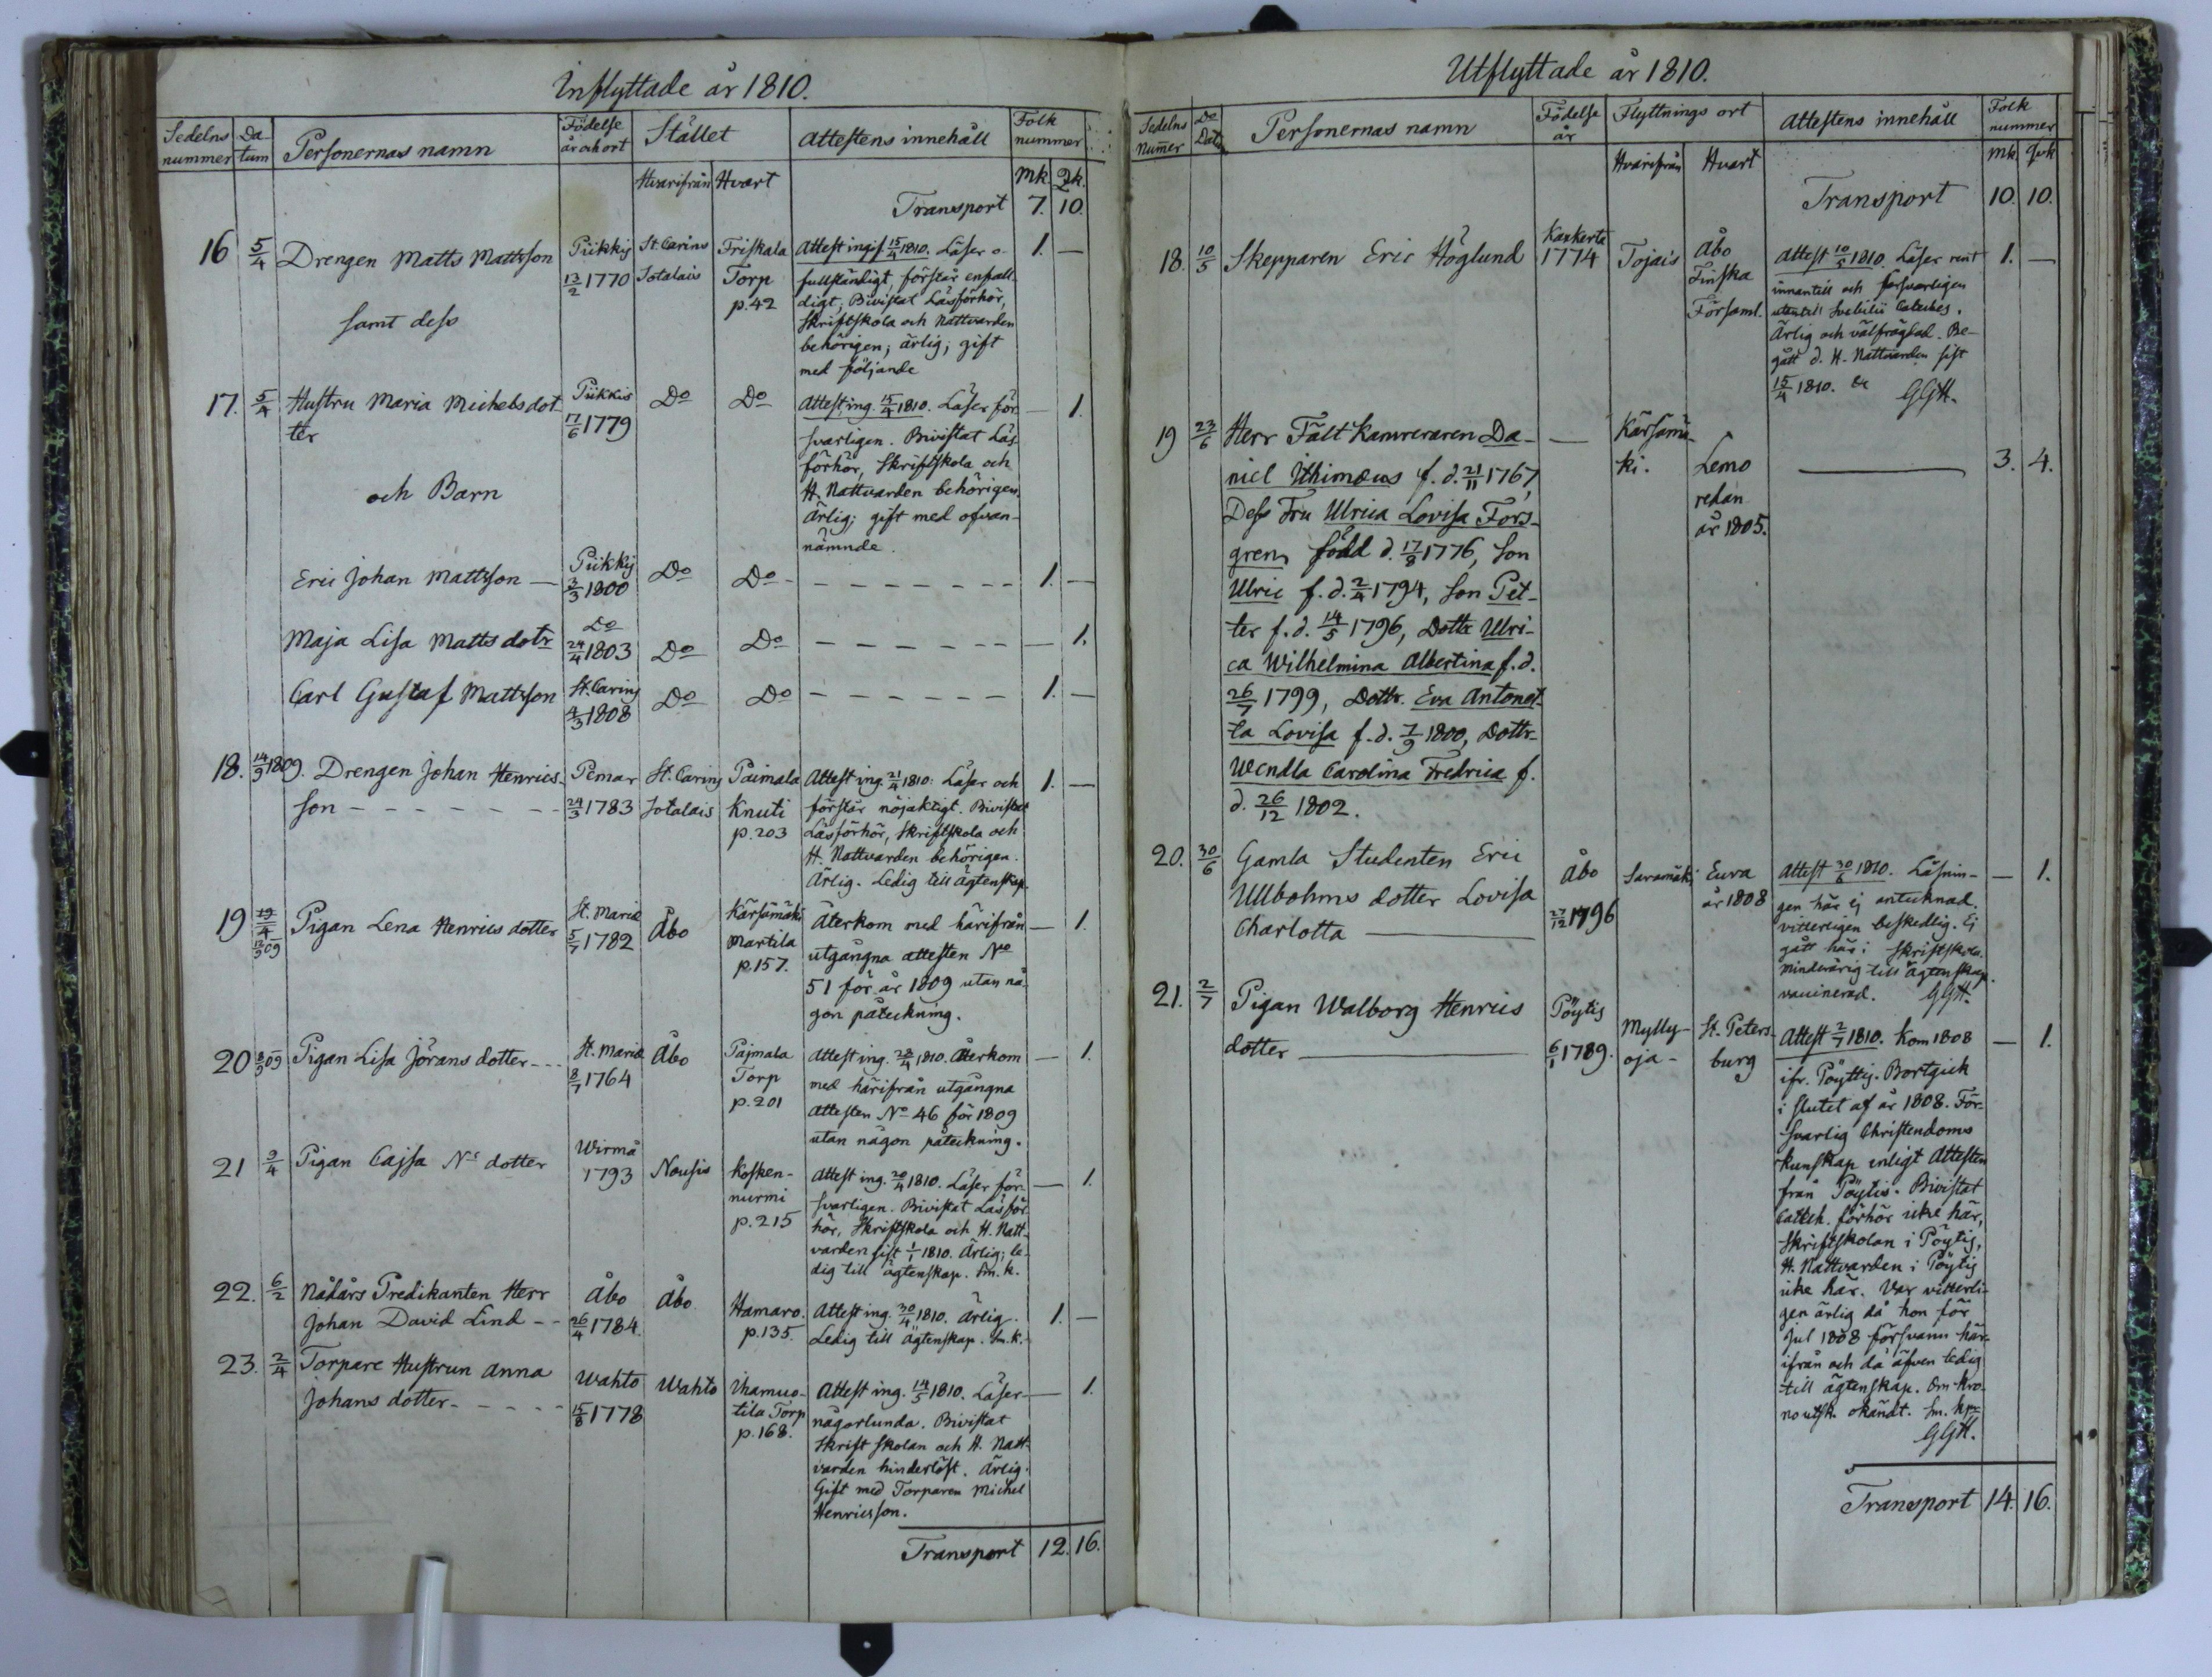 Inflyttade år 1810.
Sedelns nummer
Da tum
Personernas namn
Födelse år och ort
Stället
Attestens innehåll
Folk nummer
Hvarifrån Hvart
Mk. Qk.
Transport 7. 10.
16 5/4 Drengen Matts Mattsson
samt dess
Piikkis
13/2 1770
St Carins
Sotalais
Friskala
Torp
p. 42
Attest ingif 15/4 1810. Läser o-
fullständigt, förstår enfall-
digt; Bivistat Läsförhör,
Skriftskola och Nattvarden
behörigen; ärlig; gift
med följande
1. —
17. 5/4 Hustru Maria Michelsdot-
ter
och Barn
Piikkis
17/6 1779
Do Do
Attest ing. 15/4 1810. Läser för-
svarligen. Bivistat Läs-
förhör, Skriftskola och
H. Nattvarden behörigen.
Ärlig; gift med ofvan-
nämnde.
— 1.
Eric Johan Mattsson —
Piikkis
3/3 1800
Do Do 1. —
Maja Lisa Matts dotr
Do
24/4 1803
Do Do — 1.
Carl Gustaf Mattsson
St. Carins
4/3 1808
Do Do 1. —
18. 14/9 1809. Drengen Johan Henrics-
son
Pemar
24/3 1783
St. Carins
Sotalais
Paimala
Knuti
p. 203
Attest ing. 21/4 1810: Läser och
förstår nöjaktigt. Bivistat
Läsförhör, Skriftskola och
H. Nattvarden behörigen.
Ärlig. Ledig till ägtenskap.
1. —
19 Pigan Lena Henrics dotter
St. Mariæ
5/7 1782
Åbo
Kärsämäki
Martila
p. 157.
Återkom med härifrån
utgångna attesten No
51 för år 1809 utan nå-
gon påteckning.
— 1.
20 Pigan Lisa Jörans dotter
St. Mariæ
8/7 1764
Åbo
Pajmala
Torp
p. 201
Attest ing. 28/4 1810. Återkom
med härifrån utgångna
Attesten No 46 för 1809
utan någon påteckning.
— 1.
21 9/4 Pigan Cajsa Ns dotter
Wirmå
1793
Nousis
Kosken-
nurmi
p. 215
Attest ing. 20/4 1810. Läser för-
svarligen. Bivistat Läsför-
hör, Skriftskola och H. Natt-
varden sist 1/1 1810. Ärlig; le-
dig till ägtenskap. Sm. k.
— 1.
22. 6/2 Nådårs Predikanten Herr
Johan David Lind
Åbo
26/4 1784.
Åbo.
Hamaro.
p. 135.
Attest ing. 30/4 1810. Ärlig.
Ledig till Ägtenskap. Sm. k.
1. —
23. 2/4 Torpare Hustrun Anna
Johans dotter
Wahto
15/8 1778
Wahto
Ihamuo-
tila Torp
p. 168.
Attest ing. 14/5 1810. Läser
någorlunda. Bivistat
Skrift skolan och H. Natt-
varden hinderlöst. Ärlig.
Gift med Torparen Michel
Henricsson.
— 1.
Transport 12. 16.
Utflyttade år 1810.
Sedelns Numer
Do Dat
Personernas namn
Födelse år
Flyttnings ort
Attestens innehåll
Folk nummer
Hvarifrån Hvart
Mk. Qvk
Transport 10. 10.
18. 10/5 Skepparen Eric Höglund
Kankerta
1774
Tojais
Åbo
Finska
Församl.
Attest 10/5 1810. Läser rent
innantill och försvarligen
utantill Svebilii Cateches.
Ärlig och välfrägdad. Be-
gått d. H. Nattvarden sist
15/4 1810. GGH.
1. —
19 23/6 Herr Fält Kamreraren Da-
niel Ithimæus f. d. 21/11 1767,
Dess Fru Ulrica Lovisa Fors-
gren född d. 17/8 1776, Son
Ulric f. d. 2/4 1794, Son Pet-
ter f. d. 14/5 1796, Dottr Ulri-
ca Wilhelmina Albertina f. d.
26/7 1799, Dottr. Eva Antonet-
ta Lovisa f. d. 7/9 1800, Dottr-
Wendla Carolina Fredrica f.
d. 26/12 1802.
—
Kärsämä-
ki.
Lemo
redan
år 1805.
3. 4.
20. 30/6 Gamla Studenten Eric
Ullbohms dotter Lovisa
Charlotta
Åbo
27/12 1796
Saramäki
Eura
år 1808
Attest 30/6 1810. Läsnin-
gen här ej antecknad.
vitterligen beskedlig. Ej
gått här i Skriftskola.
Mindreårig till ägtenskap.
vaccinerad. GGH.
— 1.
21. 2/7 Pigan Walborg Henrics
dotter
Pöytis
6/1 1789.
Mylly-
oja
St. Peters-
burg
Attest 2/7 1810. Kom 1808
ifr. Pöyttis. Bortgick
i slutet af år 1808. För-
svarlig Christendoms
kunskap enligt Attesten
från Pöytis. Bivistat
Catech. förhör icke här,
Skriftskolan i Pöytis,
H. Nattvarden i Pöytis
icke här. Var vitterli-
gen ärlig då hon för
Jul 1808 försvann här-
ifrån och då äfven ledig
till ägtenskap. Om Kro-
no utsk. okändt.
GGH.
— 1.
Transport 14. 16.